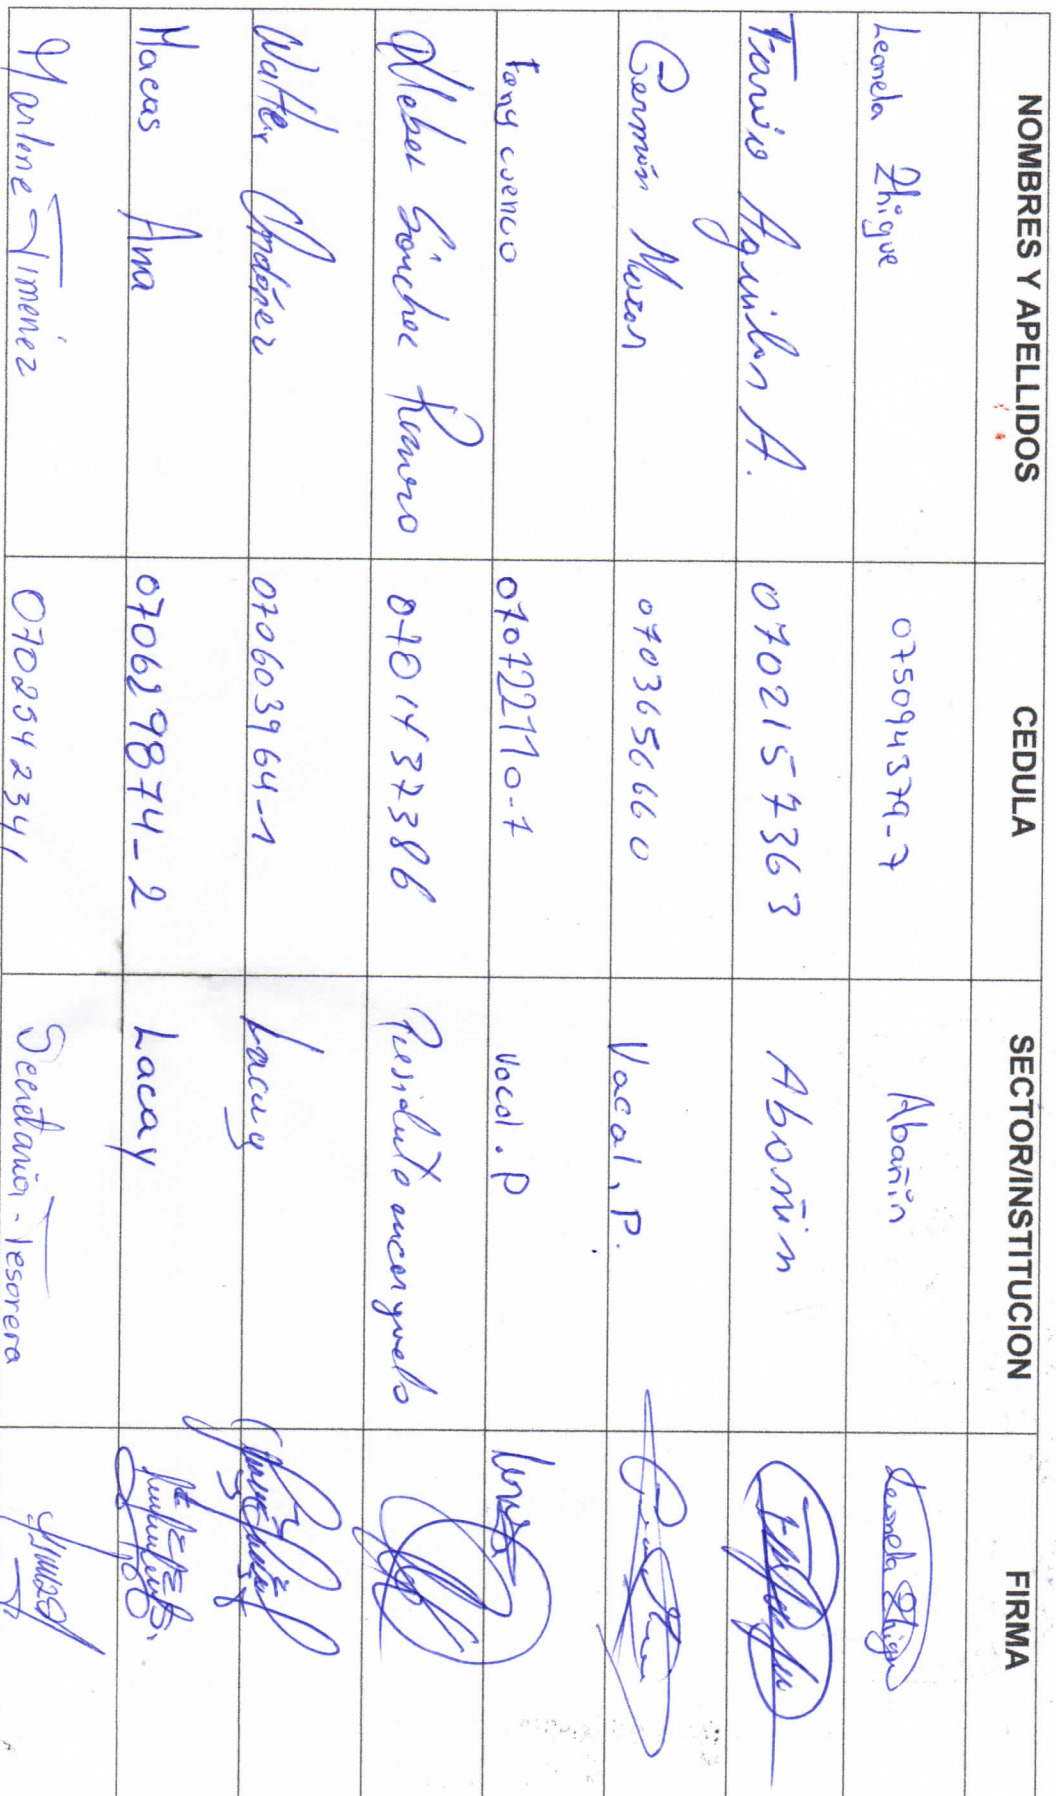 NOMBRES Y APELLIDOS CEDULA SECTOR/INSTITUCION FIRMA
Leonela Zhigue 075094379-7 Abañin Leonela Zhigue
Franvio Aguilar A. 0702157363 Abañin
Germán Moran 0703656660 Vocal, P.
Fany cuenca 070722110-7 Vocal. P
Kleber Sánchez Romero 0701437386 Presidente encargado
Walter Ordóñez 070603964-1 Lacay
Macas Ana 070629874-2 Lacay
Marlene Jimenez 0702542341 Secretaria - Tesorera